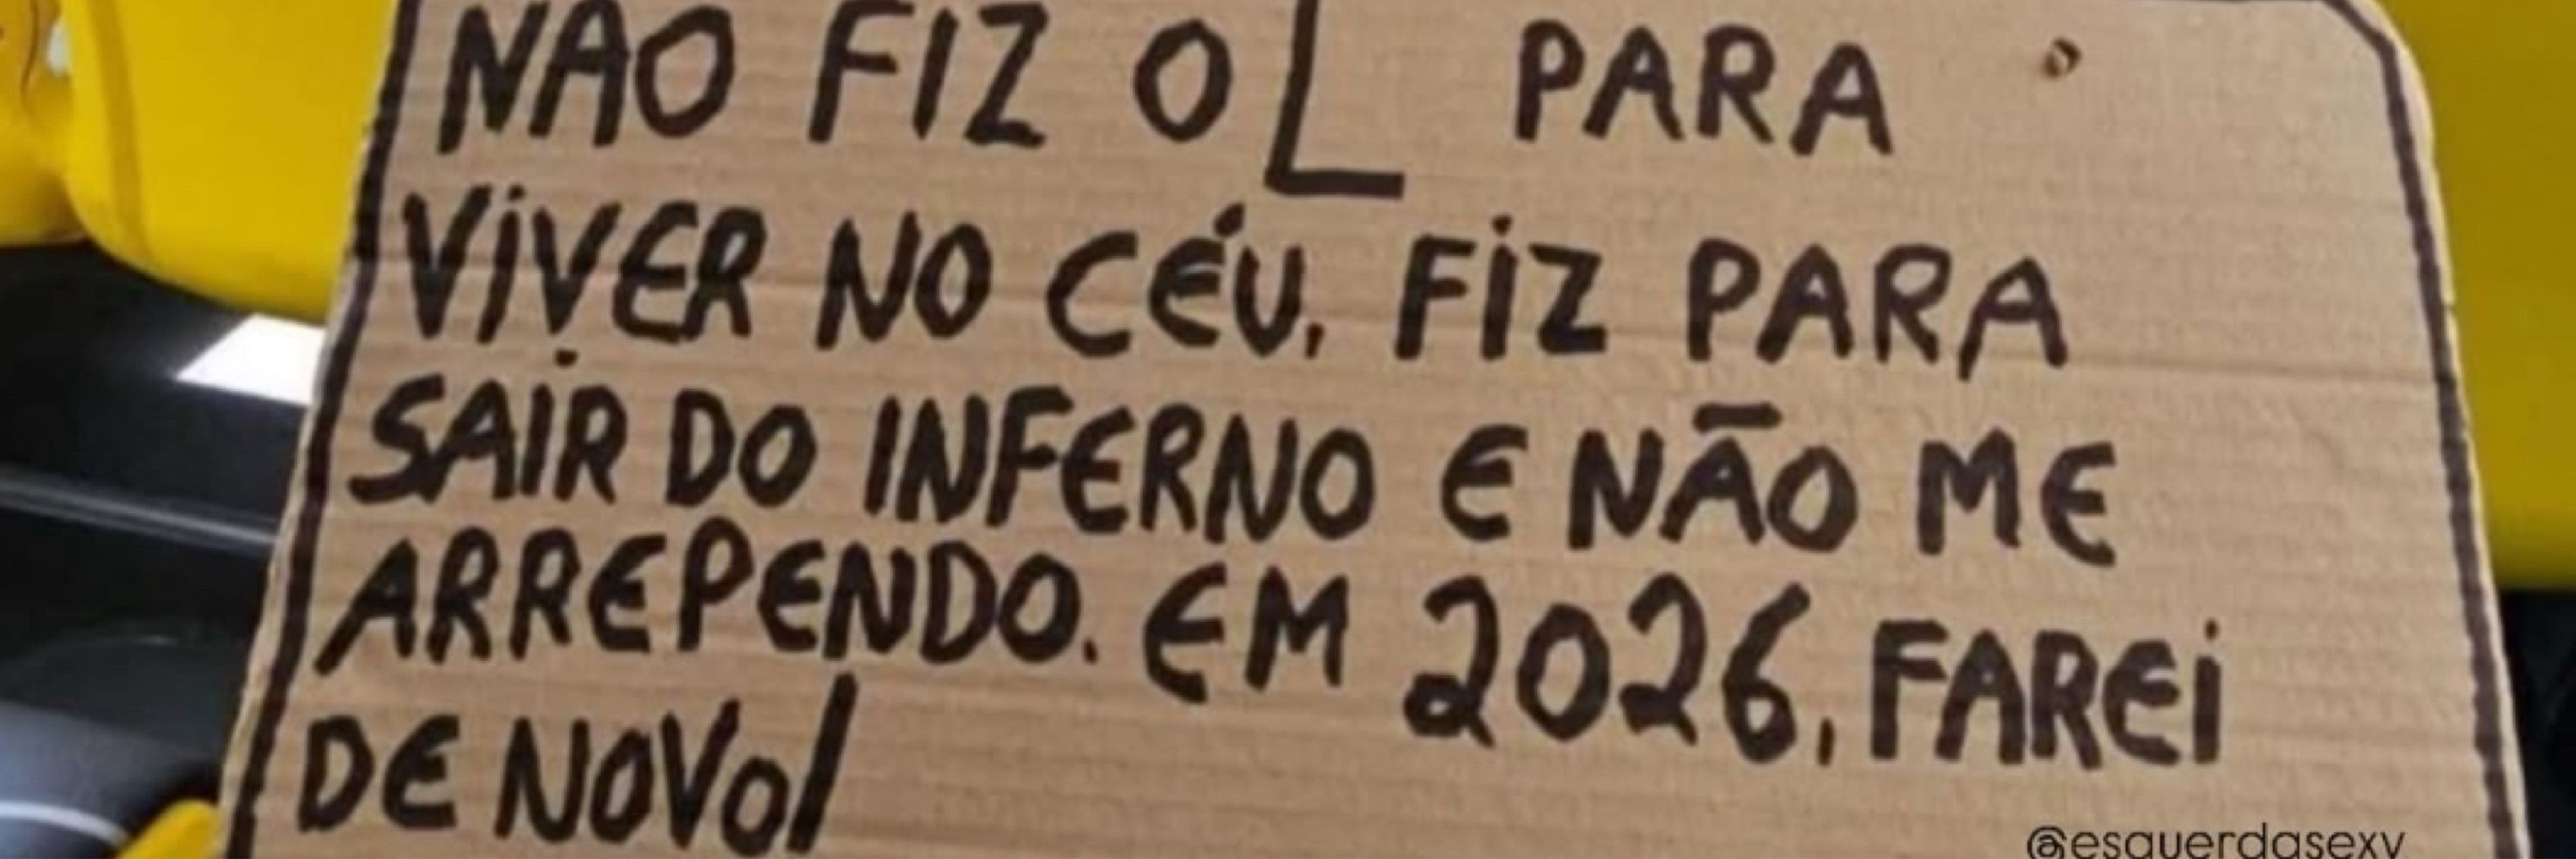 NÃO FIZ O L PARA
VIVER NO CÉU, FIZ PARA
SAIR DO INFERNO E NÃO ME
ARREPENDO. EM 2026, FAREI
DE NOVO!
@esquerdasexy